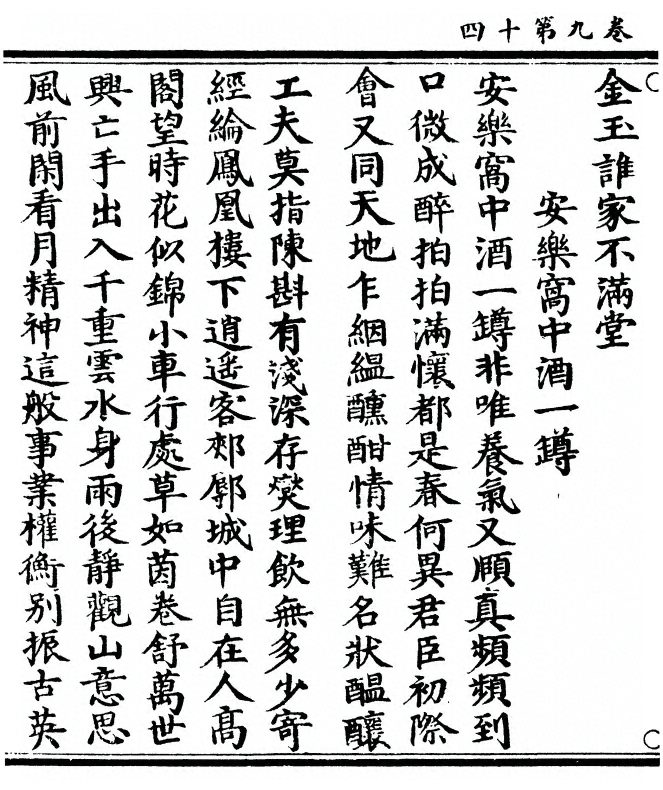 卷九第十四
金玉誰家不滿堂
安樂窩中酒一罇
安樂窩中酒一罇非唯養氣又頤真頻頻到
口微成醉拍拍滿懷都是春何異君臣初際
會又同天地乍絪縕醺酣情味難名狀醞釀
工夫莫指陳斟有淺深存爕理飲無多少寄
經綸鳳凰樓下逍遥客郟鄏城中自在人高
閣望時花似錦小車行處草如茵卷舒萬世
興亡手出入千重雲水身雨後靜觀山意思
風前閑看月精神這般事業權衡别振古英